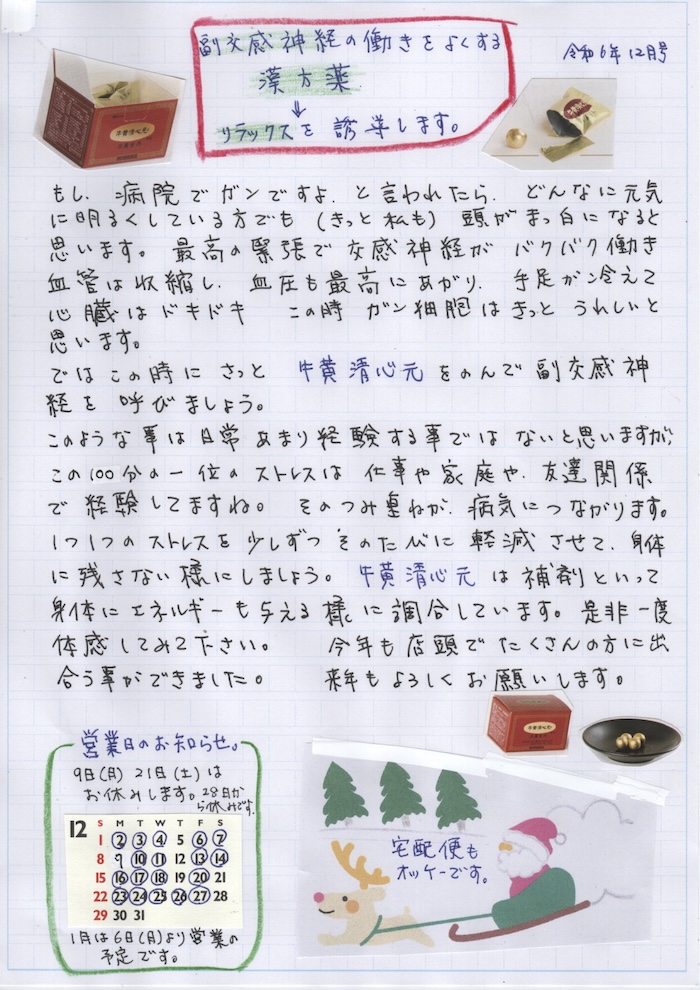 副交感神経の働きをよくする
漢方薬
⇓
リラックスを誘導します。
令和6年12月号
牛黄清心元
もし、病院でガンですよ、と言われたら、どんなに元気
に明るくしている方でも(きっと私も)頭がまっ白になると
思います。最高の緊張で交感神経がバクバク働き
血管は収縮し、血圧も最高にあがり、手足が冷えて
心臓はドキドキ この時ガン細胞はきっとうれしいと
思います。
ではこの時にさっと 牛黄清心元をのんで副交感神
経を呼びましょう。
このような事は日常あまり経験する事ではないと思いますが、
この100分の一位のストレスは仕事や家庭や、友達関係
で経験してますね。そのつみ重ねが、病気につながります。
1つ1つのストレスを少しずつそのたびに軽減させて、身体
に残さない様にしましょう。牛黄清心元は補剤といって
身体にエネルギーも与える様に調合しています。是非一度
体感してみて下さい。 今年も店頭でたくさんの方に出
合う事ができました。 来年もよろしくお願いします。
営業日のお知らせ。
9日(月)21日(土)は
お休みします。28日か
ら休みです。
12 S M T W T F S
1 2 3 4 5 6 7
8 9 10 11 12 13 14
15 16 17 18 19 20 21
22 23 24 25 26 27 28
29 30 31
1月は6日(月)より営業の
予定です。
宅配便も
オッケーです。